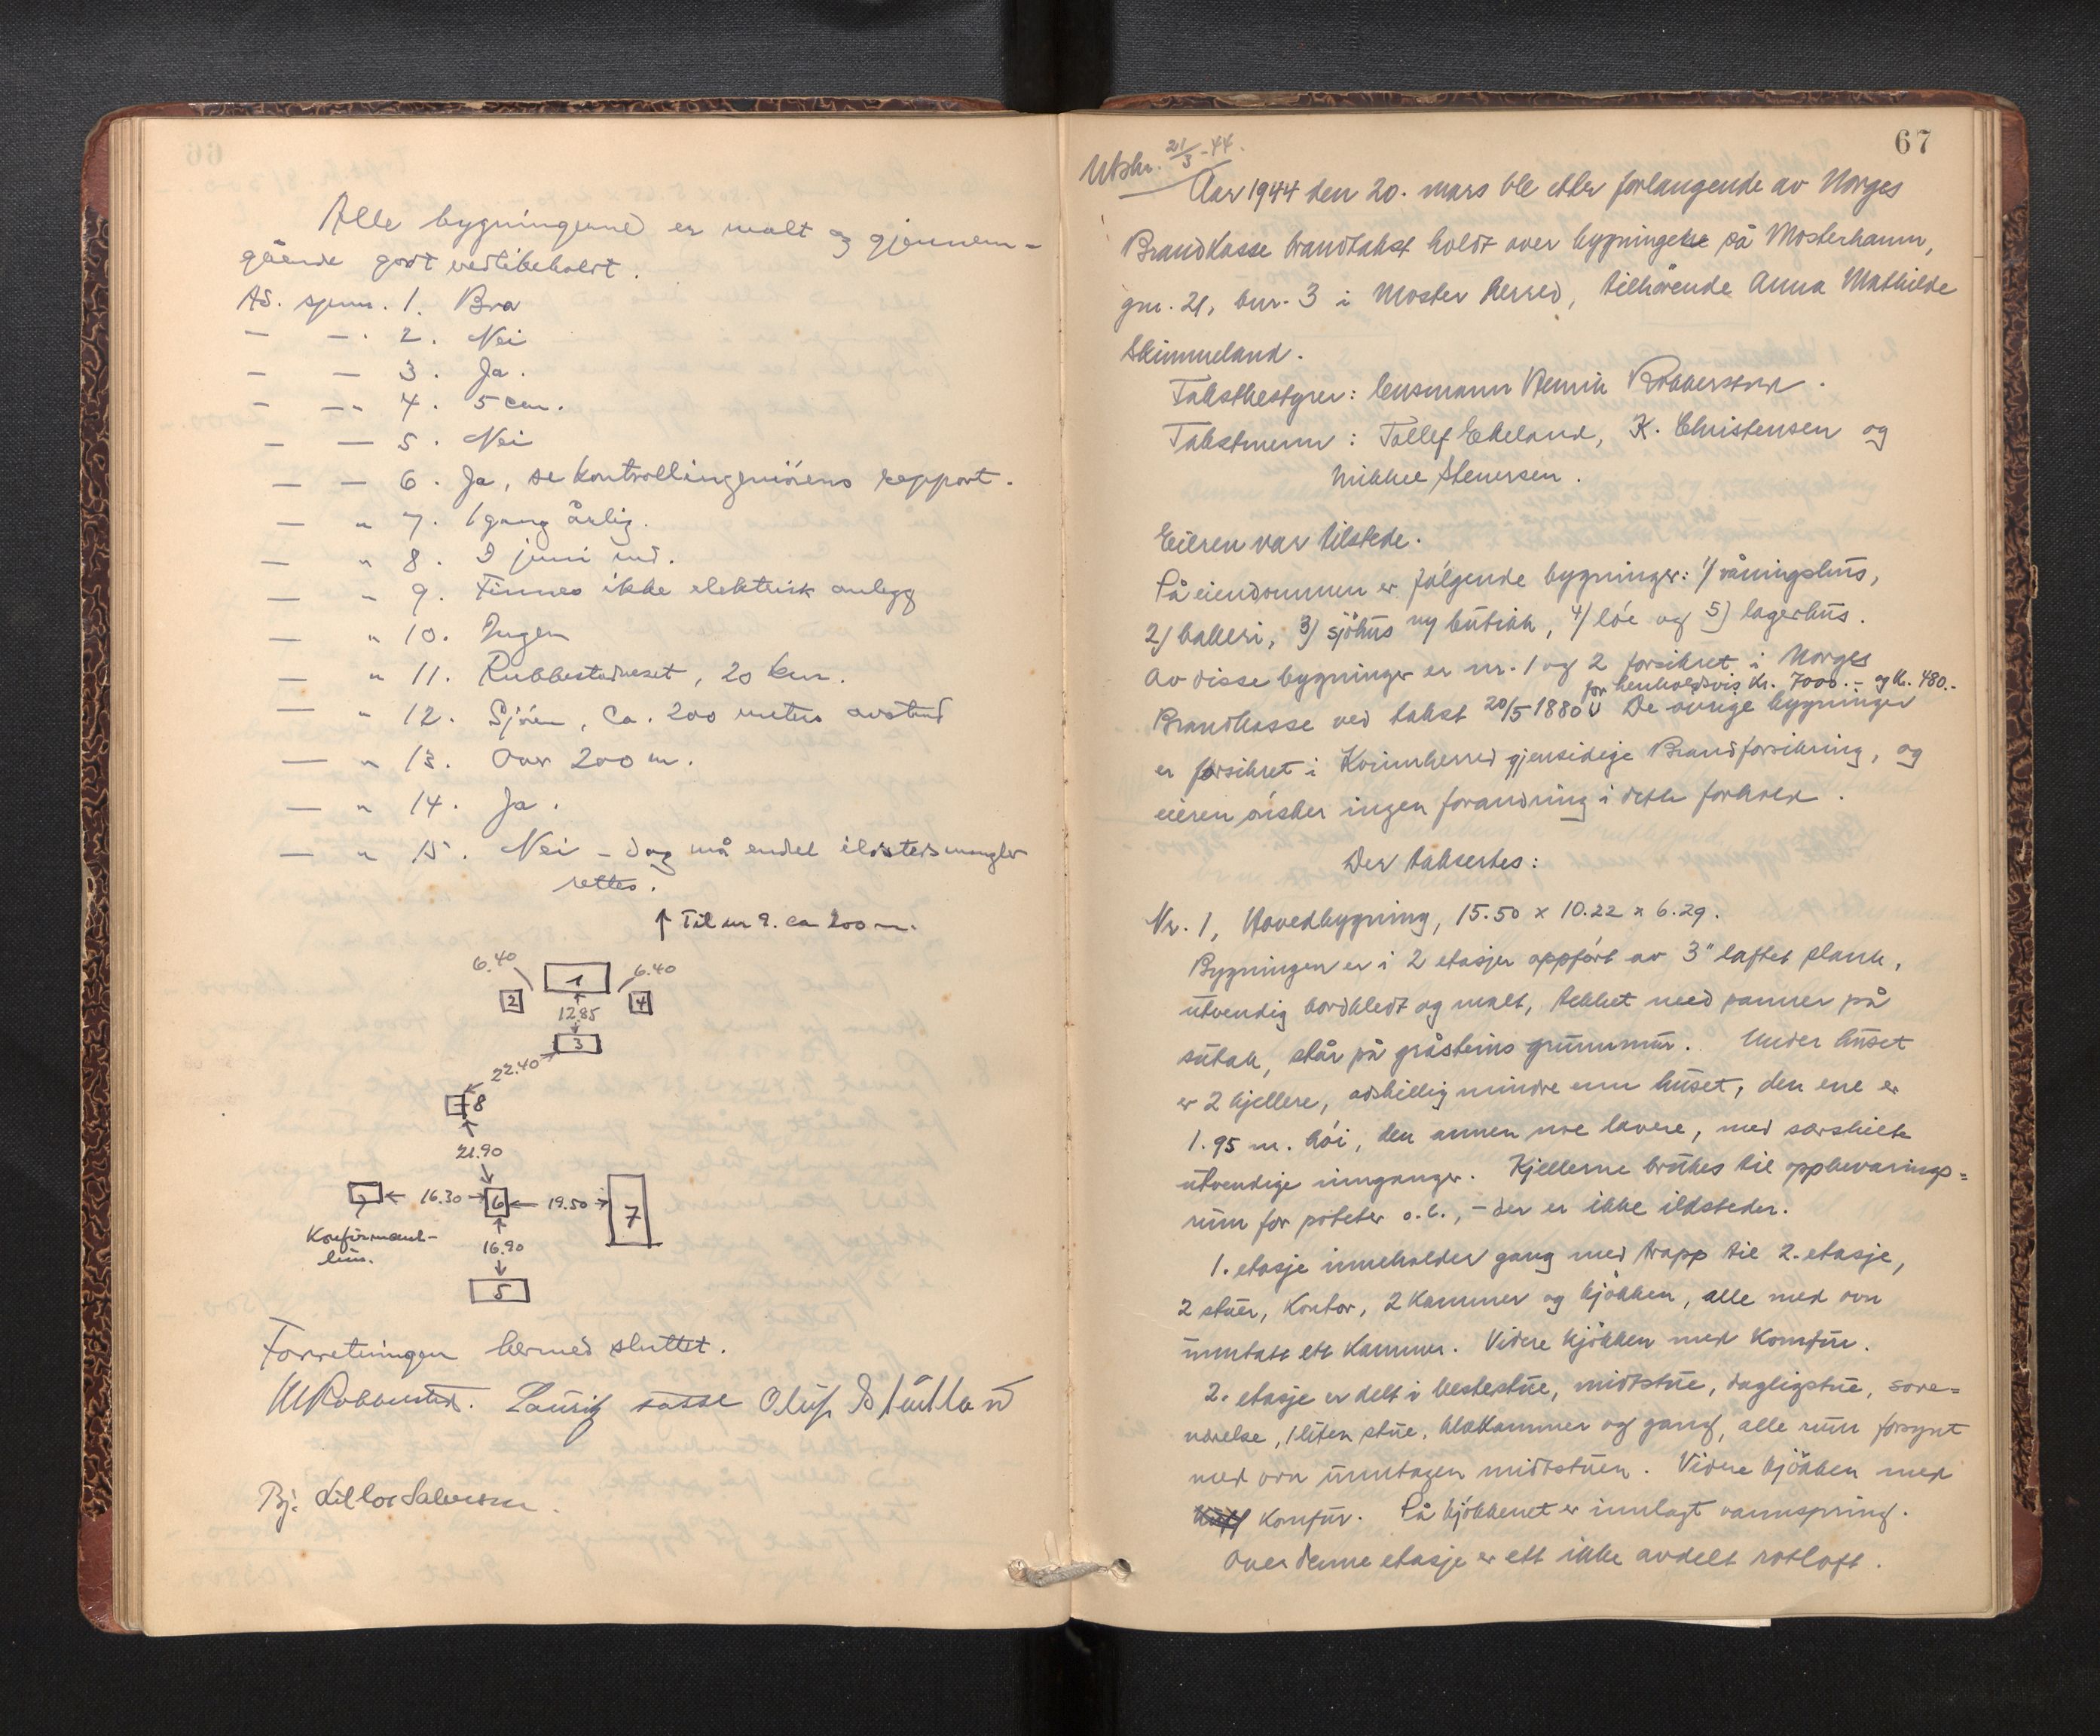 Alle bygningene er malt og gjennem-
gående godt vedlikeholdt.
Ad. spm. 1. Bra
— —. 2. Nei
— — 3. Ja.
- —" 4. 5 cm.
— — 5. Nei
— — 6. Ja, se kontrollingeniörens rapport.
— " 7. 1 gang årlig.
— " 8. I juni md.
— " 9. Finnes ikke elektrisk anlegg
— " 10. Ingen
— " 11. Rubbestadneset, 20 km.
— " 12. Sjöen, Ca. 200 meters avstand
— " 13. Over 200 m.
— " 14. Ja.
— " 15. Nei - dog må endel ildstedsmangler
rettes.
↑ Til nr 9. ca 200 m.
6.40 1 6.40
2 4
12.85
3
22.40
8
21.90
16.30 6 19.50 7
Konfirmant-
hus.
16.90
5
Forretningen hermed sluttet.
Lauritz Olûf
Bj.
67
Utskr. 21/3-44.
Aar 1944 den 20. mars ble etter forlangende av Norges
Brandkasse brandtakst holdt over bygningene på Mosterhamn,
gnr. 21, bnr. 3 i Moster herred, tilhörende Anna Mathilde
Skimmeland.
Takstbestyrer: lensmann Henrik Robberstad.
Takstmenn: Tollef Ekeland, K. Christensen og
Mikkel Stenersen.
Eieren var tilstede.
På eiendommen er fölgende bygninger: 1/ våningshûs,
2) bakeri, 3) sjöhûs m/ bûtikk, 4/ löe og 5) lagerhûs.
Av disse bygninger er nr. 1 og 2 forsikret i Norges
for henholdsvis kr. 7000.- og kr. 480.-
Brandkasse ved takst 20/5 1880 De övrige bygninger
er forsikret i Kvinnherred gjensidige Brandforsikring, og
eieren önsker ingen forandring i dette forhold.
Der takseres:
Nr. 1, Hovedbygning, 15.50 x 10.22 x 6.29.
Bygningen er i 2 etasjer oppfört av 3" laftet plank,
ûtvendig bordkledt og malt, tekket med panner på
sûtak, står på gråsteins grûnnmûr. Under hûset
er 2 kjellere, adskillig mindre enn hûset, den ene er
1.95 m. höi, den annen noe lavere, med særskilte
ûtvendige innganger. Kjellerne brûkes til oppbevarings=
rûm for poteter o.l., - der er ikke ildsteder.
1. etasje inneholder gang med trapp til 2. etasje,
2 stûer, Kontor, 2 Kammer og kjökken, alle med ovn
ûnntatt ett Kammer. Videre kjökken med Komfûr.
2. etasje er delt i bestestûe, midtstûe, dagligstûe, sove=
værelse, 1 liten stûe, klekammer og gang, alle rûm forsynt
med ovn ûnntagen midtstûen. Videre kjökken med
Komfûr. På kjökkenet er innlagt vannspring.
Over denne etasje er ett ikke avdelt rotloft.